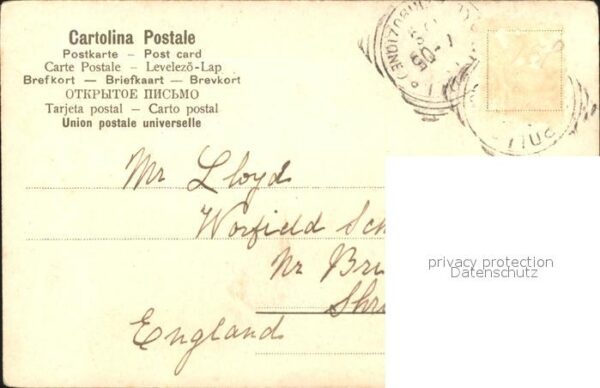 Cartolina Postale
Postkarte — Post card
Carte Postale — Levelező-Lap
Brefkort — Briefkaart — Brevkort
ОТКРЫТОЕ ПИСЬМО
Tarjeta postal — Carto postal
Union postale universelle
Mr Lloyd
Worfield Sch
Nr Bri
Shr
England
privacy protection
Datenschutz